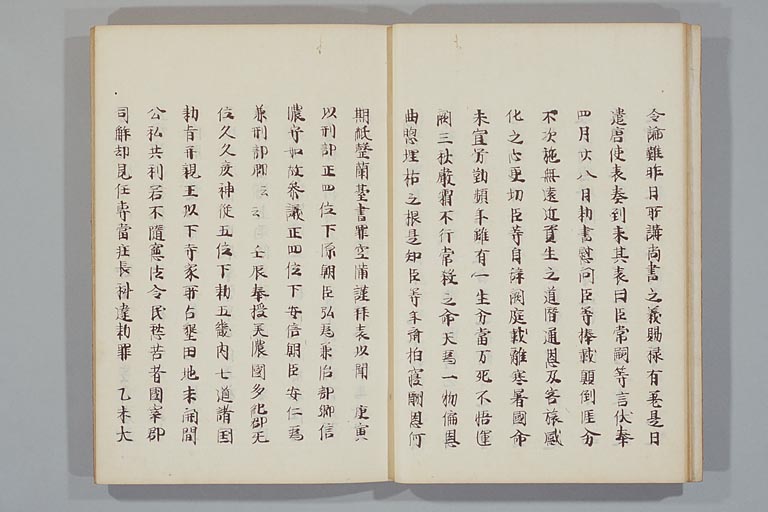 令論難昨日所講尚書之義賜禄有差是日
遣唐使表奏到来其表曰臣常嗣等言伏奉
四月廿八日勅書慰問臣等捧戴顛到匪分
不次施無遠近資生之道曆通恩及客旅感
化之心更切臣等自辞闕庭載離寒暑国命
未宣労勤頻年雖有一生分當万死不悟運
闕三秋嚴霜不行常殺之命天為一物偏恩
曲惣埋枯之根是知臣等
恩何
期紙聲蘭薹書罪空蒲謹拝表以聞 庚寅
以刑部正四位下源朝臣弘為兼治部卿信
濃守如故叅議正四位下安倍朝臣安仁為
兼刑部卿云々 壬辰奉授美濃國多伎郡无
位久久度神従五位下勅五畿内七道諸国
勅旨并親王以下寺家所占墾田地未開間
公私共利若不隨憲法令民愁苦者國宰郡
司解却見任専當庄長科違勅罪 乙未大